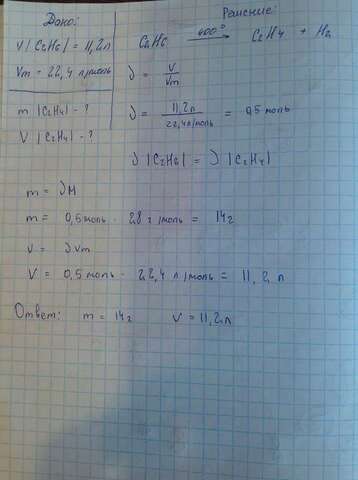 Дано:
V |C₂H₆| = 11,2 л
Vm = 22,4 л/моль
m |C₂H₄| - ?
V |C₂H₄| - ?
Решение:
C₂H₆ 400° → C₂H₄ + H₂
ν = V/Vm
ν = 11,2 л / 22,4 л/моль = 0,5 моль
ν |C₂H₆| = ν |C₂H₄|
m = νM
m = 0,5 моль · 28 г/моль = 14 г
V = νVm
V = 0,5 моль · 22,4 л/моль = 11,2 л
Ответ: m = 14 г V = 11,2 л